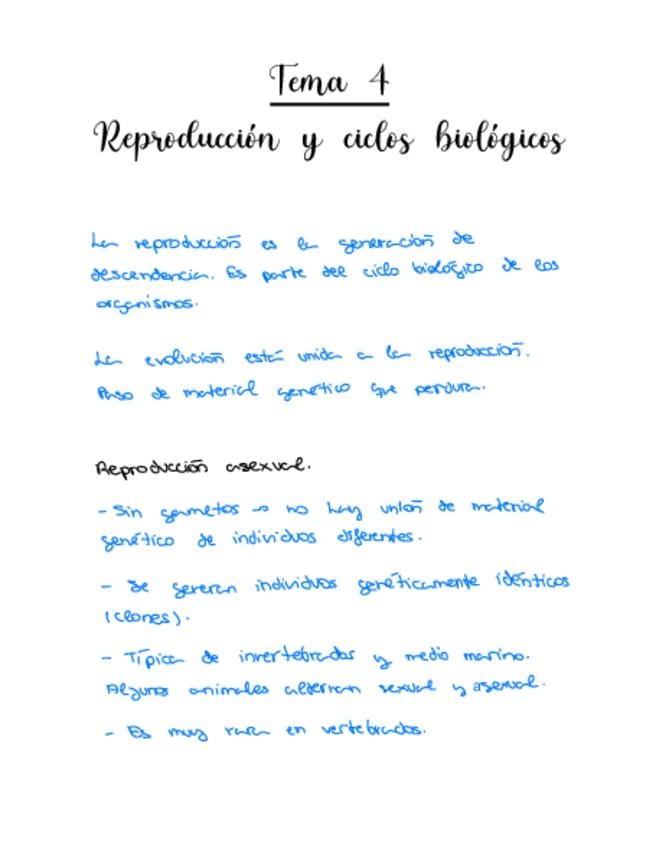 Tema 4
Reproducción y ciclos biológicos
La reproducción es la generación de
descendencia. Es parte del ciclo biológico de los
organismos.
La evolución está unida a la reproducción.
Paso de material genético que perdura.
Reproducción asexual.
- Sin gametos → no hay unión de material
genético de individuos diferentes.
- Se generan individuos genéticamente idénticos
(clones).
- Típica de invertebrados y medio marino.
Algunos animales alternan sexual y asexual.
- Es muy rara en vertebrados.